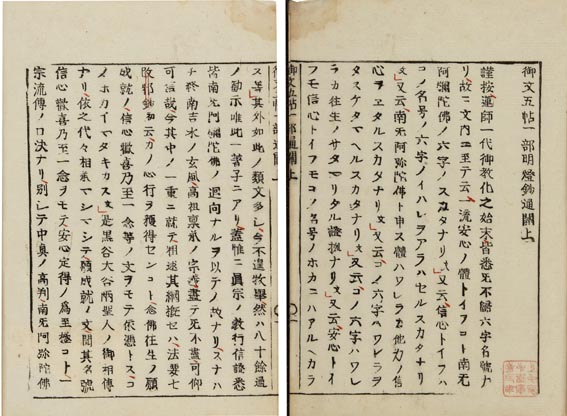 御文五帖一部明燈鈔通關上
謹按運師一代御教化之始末皆悉旡不歸六字名號ナ
リ故ニ文內ニ至テ云一流安心ノ體トイフコト南无
阿彌陀佛ノ六字ノスカタナリ文又云信心トイフハ
コノ名号ノ六字ノイハレヲアラハセルスカタナリ
文又云南无阿弥陀佛ト申ス體ハワレラカ他力ノ信
心ヲヱタルスカタナリ文又云コノ六字ハワレラヲ
タスケタマヘルスカタナリ文又云コノ六字ハワレ
ラカ往生ノサタマリタル證據ナリ文又云安心トイ
フモ信心トイフモコノ名号ノホカニハアルヘカラ
御文五帖一部通關上
御文五帖一部通關上
ス等其外如此ノ類文多シ今不遑牧擧然ハ八十餘通
ノ勸示唯此一等ニアリ蓋惟ニ眞宗ノ教行信證悉
皆南无阿弥陀佛ノ迴向ナルヲ以テノ故ナリスナハ
チ終南吉水ノ玄風高祖稟承ノ宗義盡テ旡不盡可仰
可信哉今其中ノ一重ニ就テ粗述其綱槪セハ法要七
鈔如云カノ心行ヲ獲得センコト念佛往生ノ願
成就ノ信心歡喜乃至一念等ノ文ヲモテ依憑トスコ
ノホカイマタキカス文是黑谷大谷兩聖人ノ御相傳
ナリ依之代々相承マシマシテ願成就ノ文聞其名號
信心歡喜乃至一念ヲモテ安心定得ノ爲至極コト一
宗流傳ノ口決ナリ別シテ中眞ノ高判南无阿弥陀佛